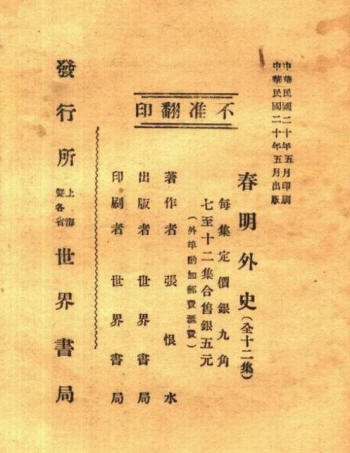 中華民國二十年五月印刷
中華民國二十年五月出版
春明外史(全十二集)
每集定價銀九角
七至十二集合售銀五元
(外埠酌加郵費滙費)
不准翻印
著作者 張恨水
出版者 世界書局
印刷者 世界書局
發行所 上海暨各省 世界書局